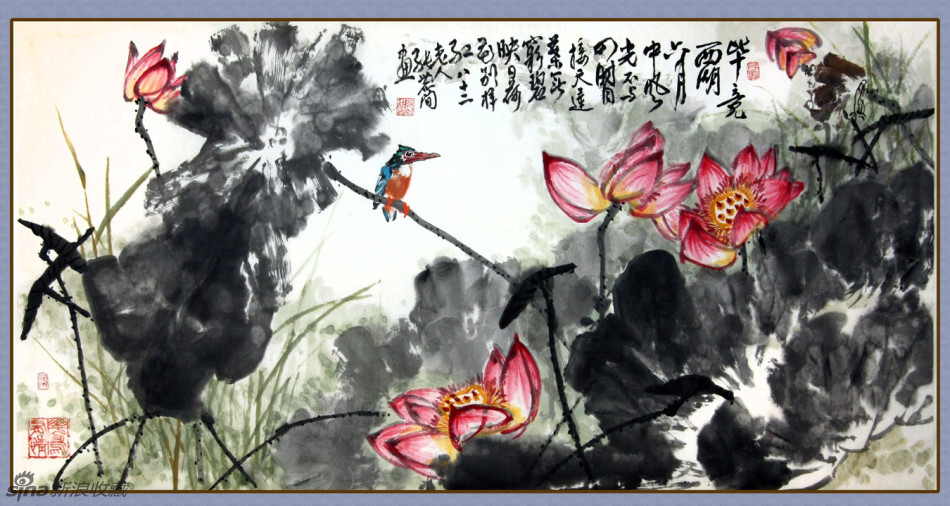 毕竟
西湖
六月
中风
光不与
四時同
接天莲
葉無
窮碧
映日荷
花别样
红 八十二
老人
张世简
画
sina新浪收藏